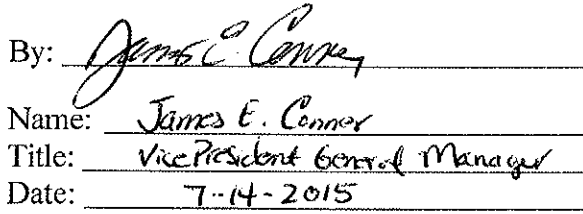 By: James E. Conner
Name: James E. Conner
Title: Vice President General Manager
Date: 7-14-2015